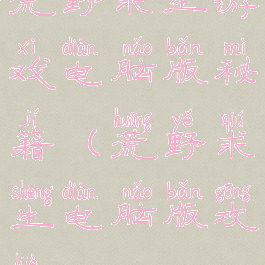 荒野求生游
xì diàn nǎo bǎn mì
戏电脑版秘
jí huāng yě qiú
籍（荒野求
shēng diàn nǎo bǎn gōng
生电脑版攻